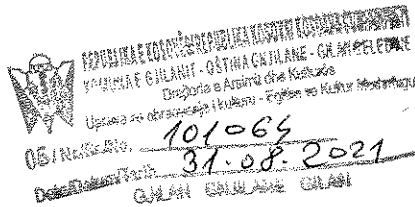 REPUBLIKA E KOSOVËS REPUBLIKA KOSOVO
KOMUNA E GJILANIT - OPŠTINA GNJILANE - GILAN BELEDİYE
Drejtoria e Arsimit dhe Kulturës
Uprava za obrazovanje i kulturu - Eğitim ve Kultur
06/Nr./Br./No. 101064
Data/Datum/Tarih 31.08.2021
GJILAN GNJILANE GILAN